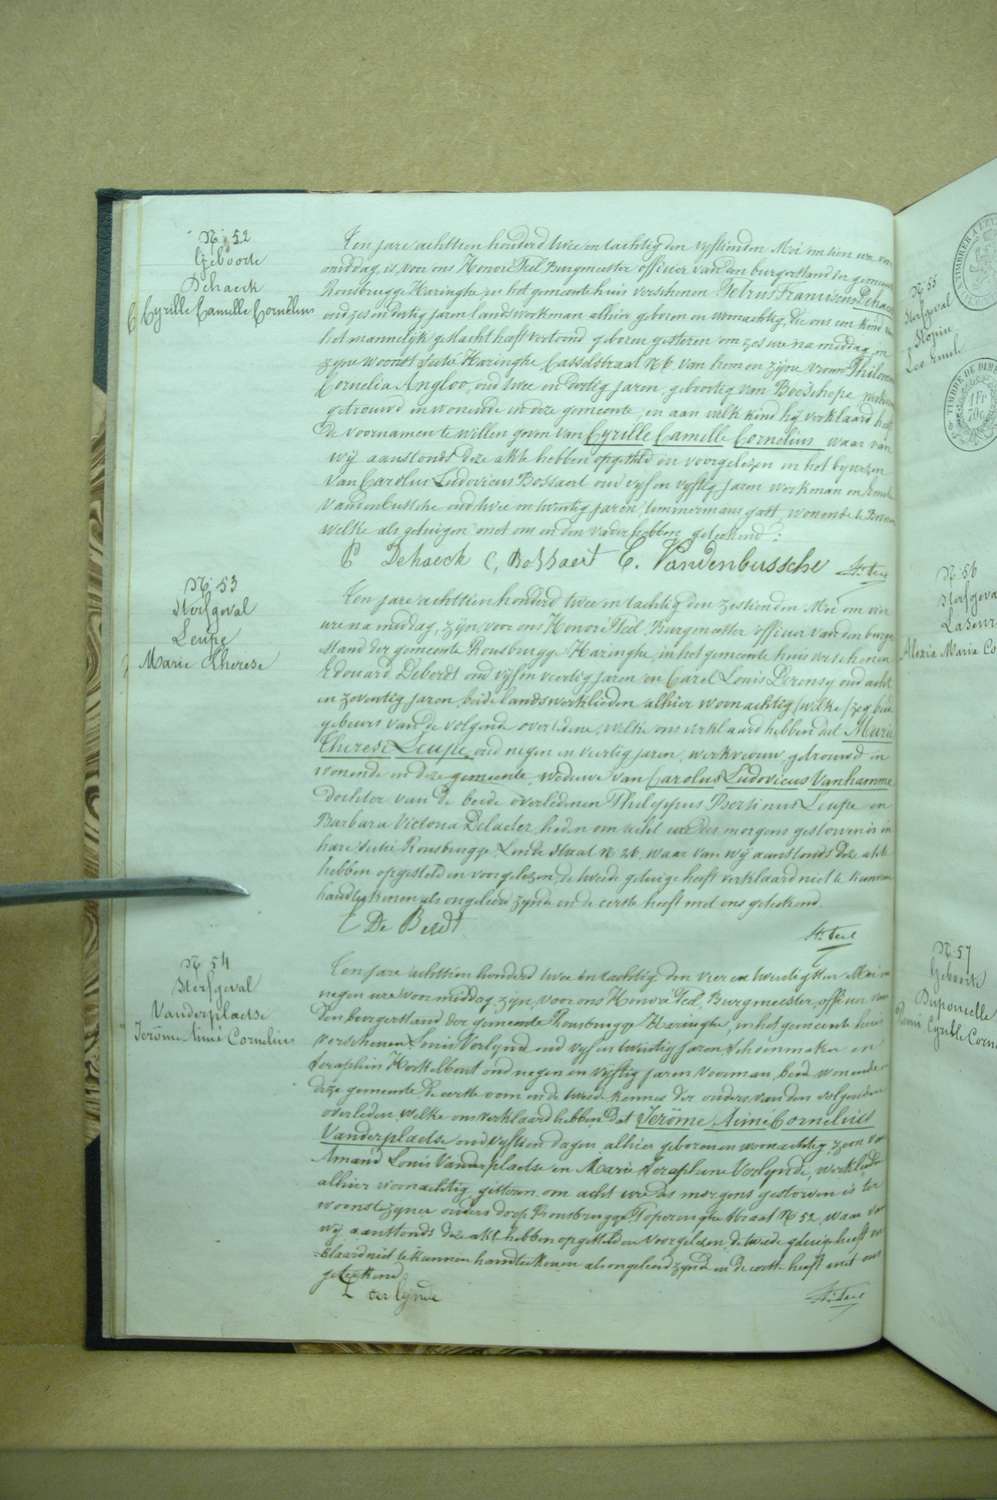 N: 52
Geboorte
Dehaeck
Cyrille Camille Cornelius
Ten jare achttien honderd twee en tachtig den vyftienden Mei om tien ure voor
middag, is, voor ons Honoré Teel Burgmeester officier van den burgerstand der gemeente
Rousbrugge Haringhe, in het gemeentehuis verschenen Petrus Franciscus Dehaeck
oud zes en dertig jaren landswerkman alhier geboren en woonachtig, die ons een kind van
het mannelyk geslacht heeft vertoond geboren gisteren om zes ure namiddag, in
zyne woonst sectie Haringhe Casselstraat N 6 van hem en zyne vrouw Philomena
Cornelia Angloo, oud twee en dertig jaren, geboortig van Boeschepe,
getrouwd en wonende in deze gemeente, en aan welk kind hy verklaard heeft
de voornamen te willen geven van Cyrille Camille Cornelius waar van
wy aanstonds deze akte hebben opgesteld en voorgelezen in het bywezen
van Carolus Ludovicus Bossaert oud vyf en vyftig jaren werkman en
Vandenbussche oud twee en twintig jaren, timmermans gast, wonende te
welke als getuigen met ons en den vader hebben geteekend.
P Dehaeck C, Bossaert C. Vandenbussche H: Teel
N: 53
Sterfgeval
Leupe
Marie Therese
Ten jare achttien honderd twee en tachtig den zestienden Mei om vier
ure namiddag, zyn, voor ons Honoré Teel Burgmeester officier van den burger
stand der gemeente Rousbrugge Haringhe, in het gemeente huis verschenen
Edouard Deberdt oud vyf en veertig jaren en Carel Louis oud acht
en zeventig jaren, beide landswerklieden alhier woonachtig, welke gezeg beide
gebeurs van de volgende overledene, welke ons verklaard hebben dat Marie
Therese Leupe, oud negen en veertig jaren, werkvrouw, getrouwd en
wonende in deze gemeente, weduwe van Carolus Ludovicus Vanhamme
dochter van de beide overledenen Philippus Bertinus Leupe en
Barbara Victoria Delader, heden om acht ure des morgens gestorven is in
hare sectie Rousbrugge, straat N 26, waar van wy aanstonds deze akte
hebben opgesteld en voorgelezen, de tweede getuige heeft verklaard niet te kunnen
handteekenen als ongeleerd zynde en de eerste heeft met ons geteekend.
E De Berdt H: Teel
N: 54
Sterfgeval
Vanderplaetse
Jerôme Aimé Cornelius
Ten jare achttien honderd twee en tachtig den vier en twentigsten Mei om
negen ure voormiddag, zyn, voor ons Honoré Teel, Burgmeester, officier van
den burgerstand der gemeente Rousbrugge Haringhe, in het gemeente huis
verschenen Louis Verlynde oud vyf en twentig jaren schoenmaker en
Seraphin Hockelbout oud negen en vyftig jaren voerman, beide wonende in
deze gemeente de eerste oom en de tweede kennes der ouders van den volgenden
overleden welke ons verklaard hebben dat Jerôme Aimé Cornelius
Vanderplaetse oud vyftien dagen alhier geboren en woonachtig, zoon van
Amand Louis Vanderplaetse en Marie Seraphine Verlynde, werklieden
alhier woonachtig, gisteren om acht ure des morgens gestorven is ter
woonste zyner ouders dorp Rousbrugge Poperinghe straat N 52, waar van
wy aanstonds deze akte hebben opgesteld en voorgelezen, de tweede getuige heeft ver
klaard niet te kunnen handteekenen als ongeleerd zynde en de eerste heeft met ons
geteekend.
L Verlynde H: Teel
N: 55
Sterfgeval
Leo Emil
TIMBRE DE DIM
1 Fr
70c
N: 56
Sterfgeval
Alexia Maria Co
N: 57
Geboorte
Duponselle
Remi Cyrille Corne